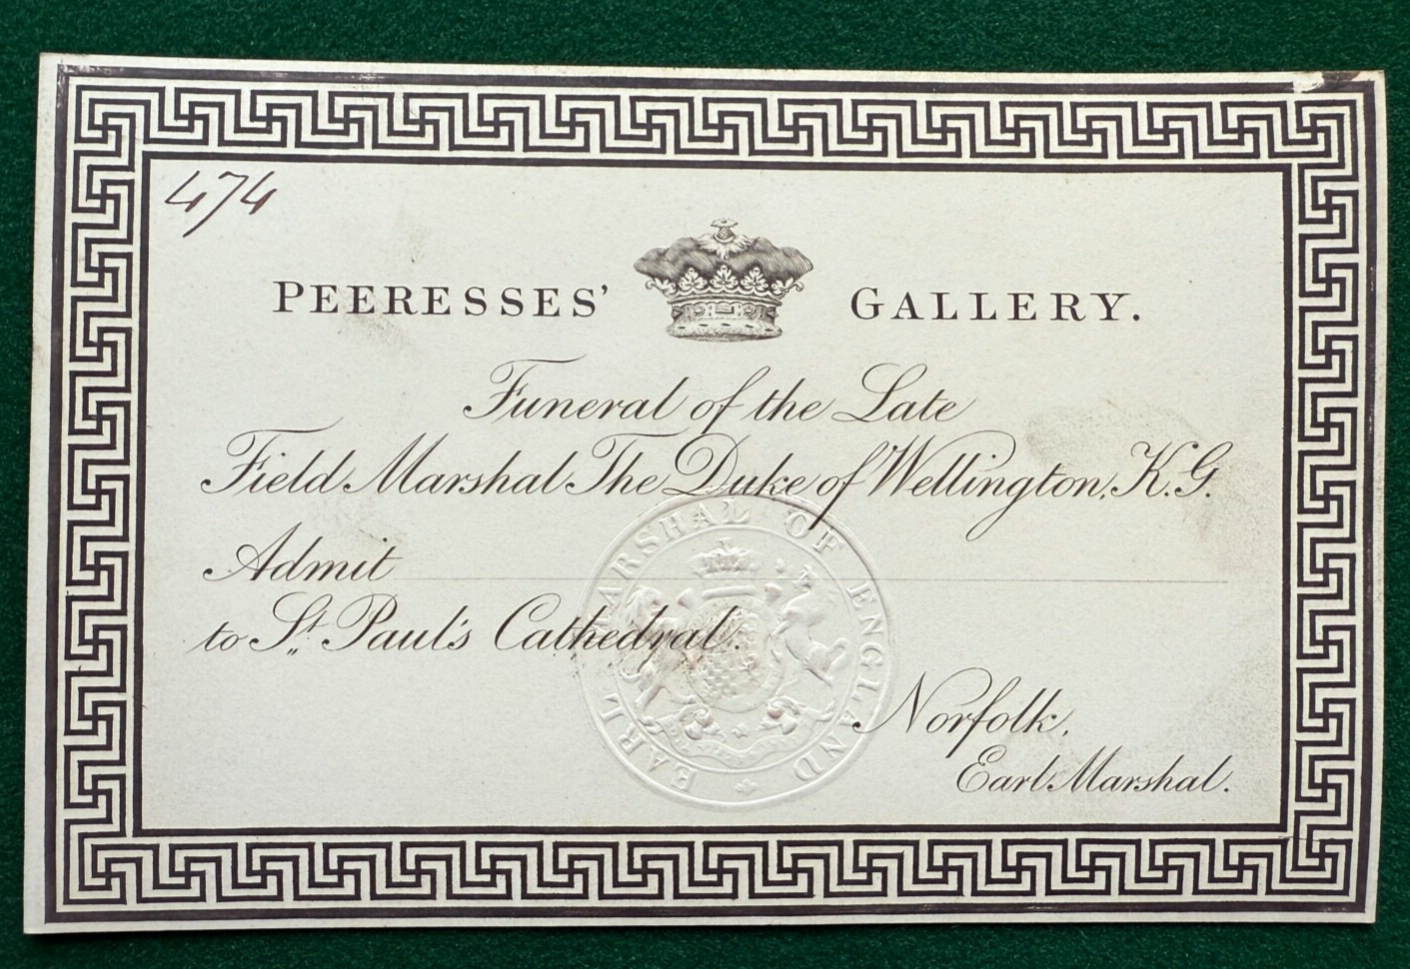 474
PEERESSES' GALLERY.
Funeral of the Late
Field Marshal The Duke of Wellington, K.G.
Admit
to St. Paul's Cathedral.
Norfolk,
Earl Marshal.
EARL MARSHAL OF ENGLAND